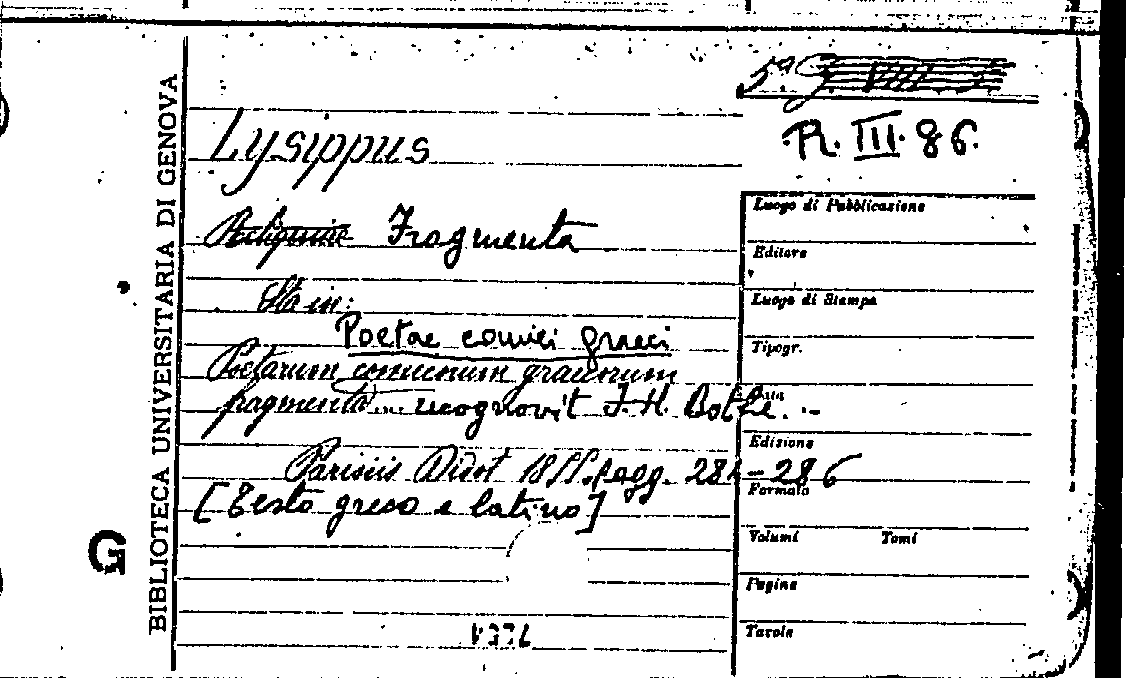 BIBLIOTECA UNIVERSITARIA DI GENOVA
G
R. III. 86.
Lysippus
Reliquiae Fragmenta
Sta in:
Poetae comici graeci
Poetarum comicorum graecorum
fragmenta... recognovit F. H. Bothe. -
Parisiis Didot 1855. pagg. 284-286
[Testo greco e latino]
Luogo di Pubblicazione
Editore
Luogo di Stampa
Tipogr.
Data
Edizione
Formato
Volumi Tomi
Pagine
Tavole